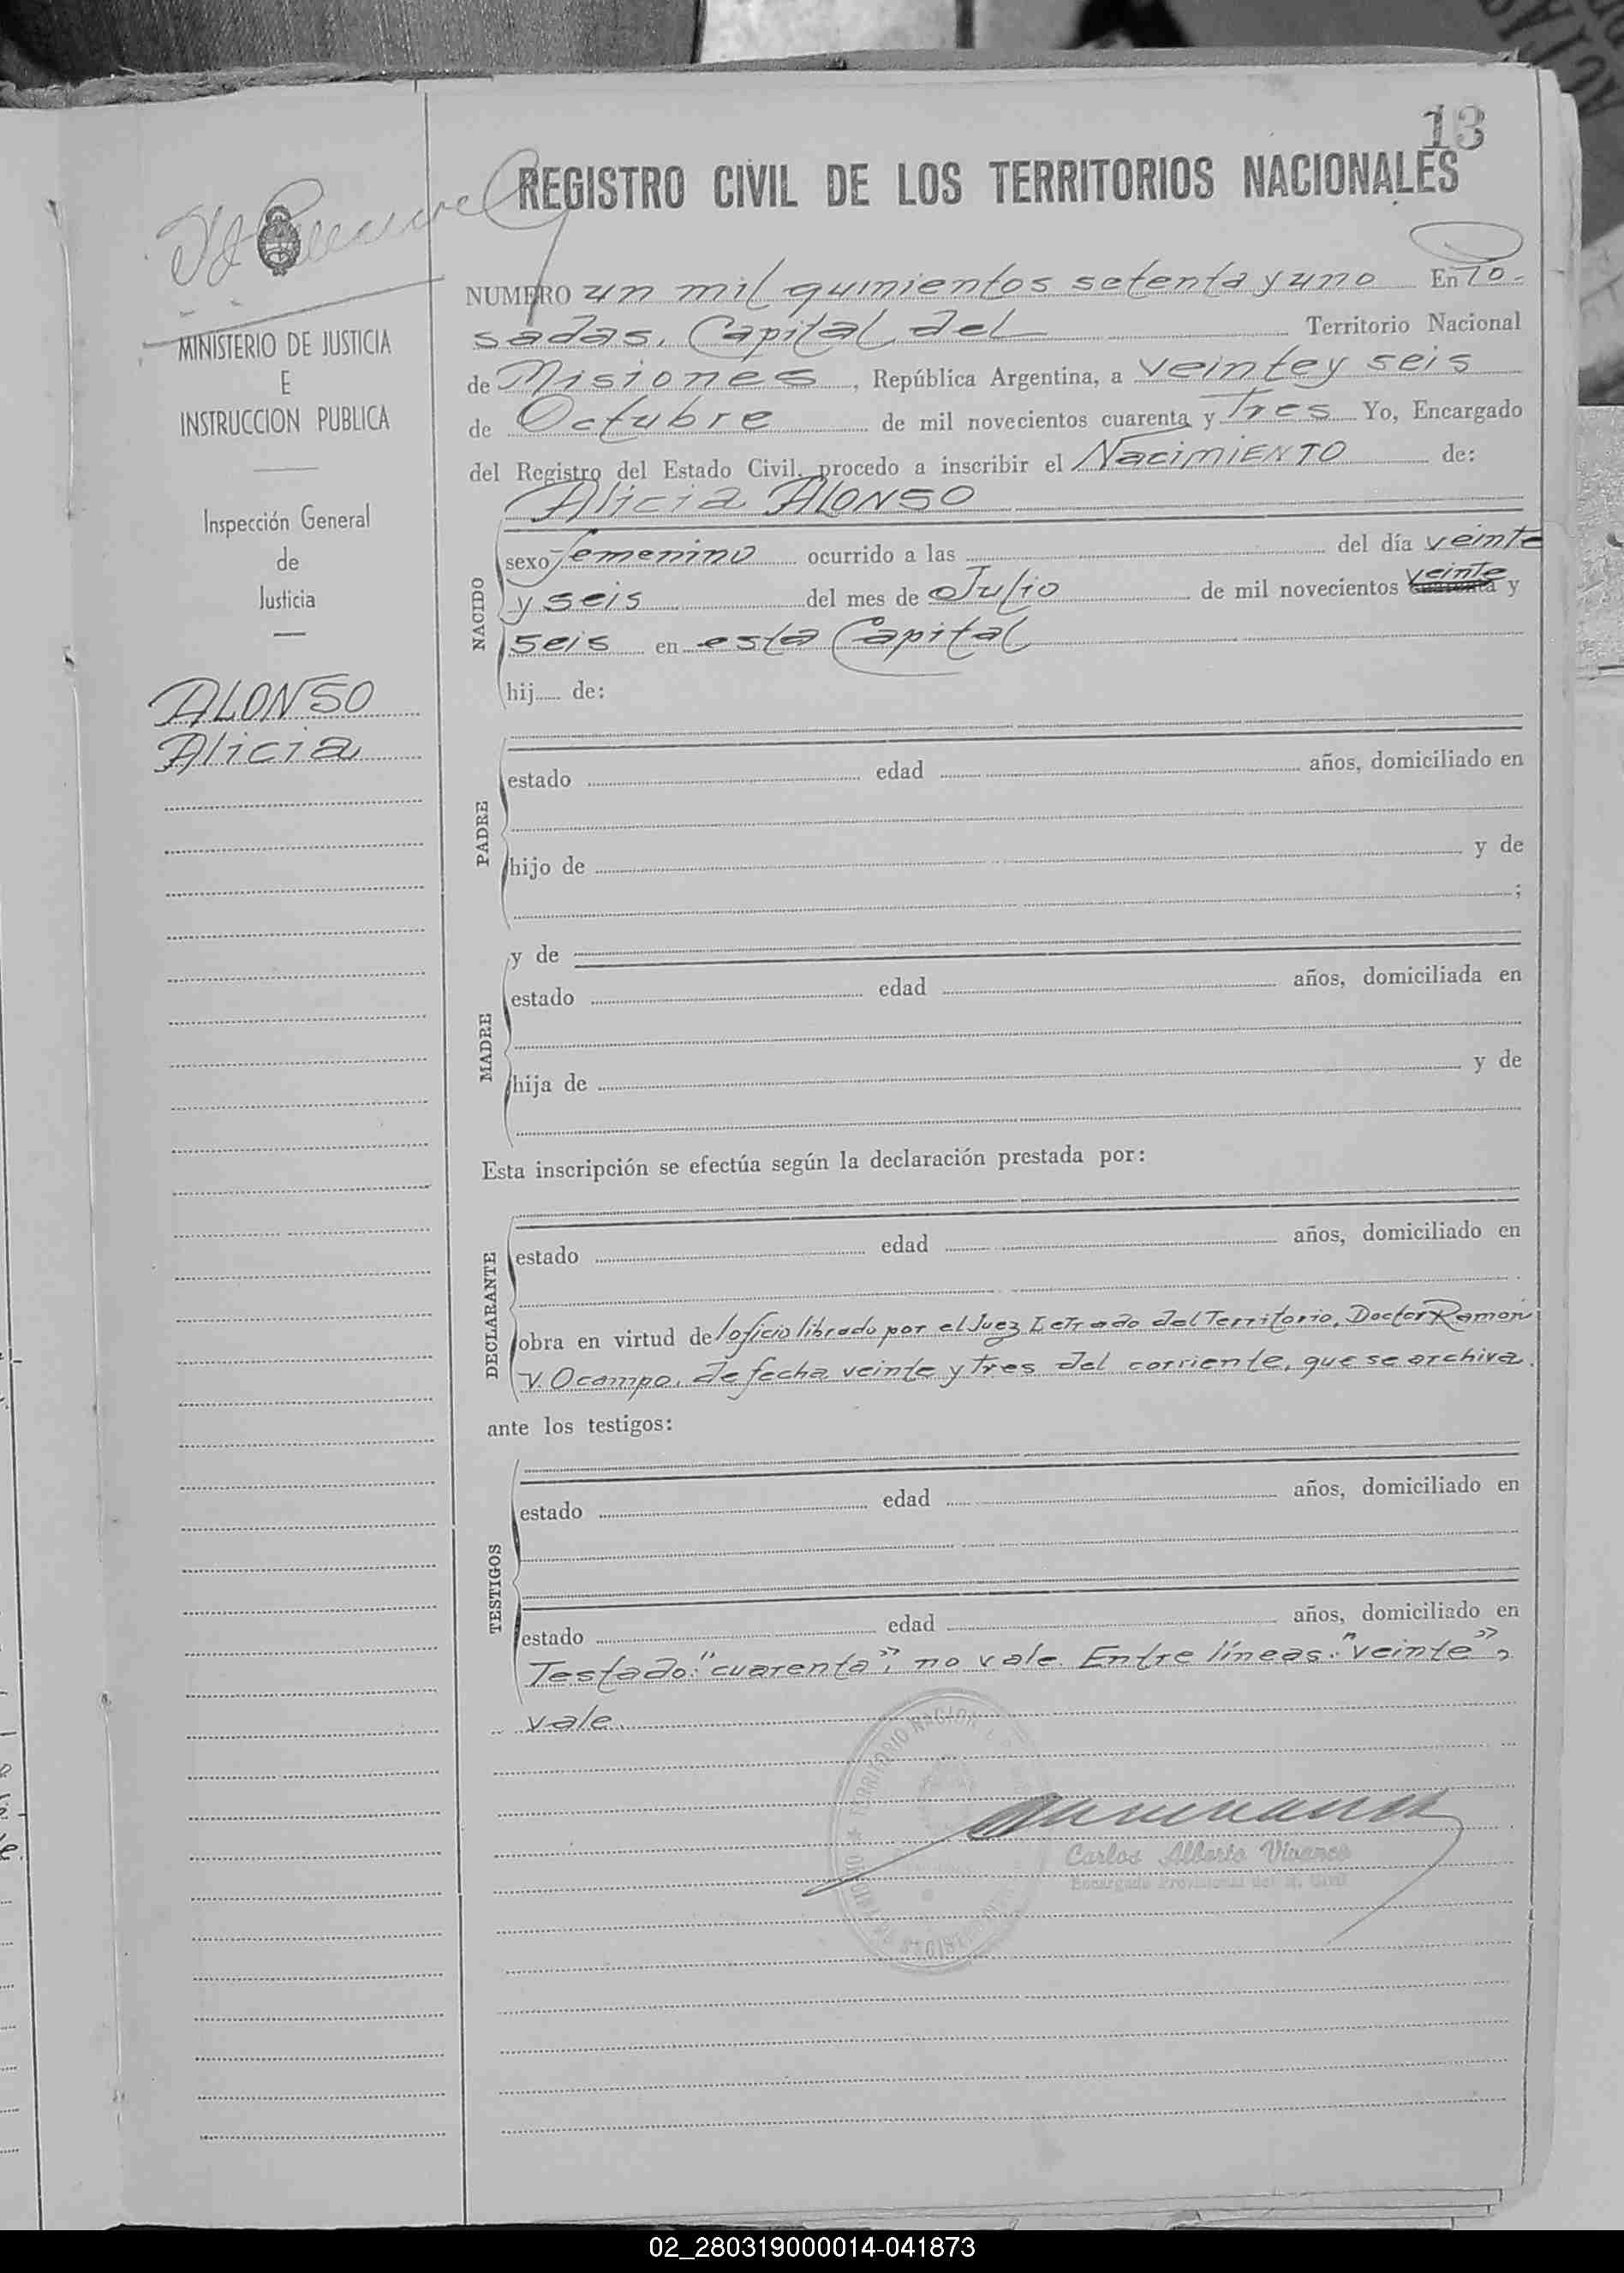 13
REGISTRO CIVIL DE LOS TERRITORIOS NACIONALES
MINISTERIO DE JUSTICIA
E
INSTRUCCION PUBLICA
Inspección General
de
Justicia
ALONSO
Alicia
NUMERO un mil quinientos setenta y uno En Po-
sadas, Capital del Territorio Nacional
de Misiones, República Argentina, a veinte y seis
de Octubre de mil novecientos cuarenta y Tres Yo, Encargado
del Registro del Estado Civil, procedo a inscribir el NacimiENTO de:
Alicia ALONSO
NACIDO
sexo femenino ocurrido a las del día veinte
y seis del mes de Julio de mil novecientos cuarenta veinte y
seis en esta Capital
hij de:
PADRE
estado edad años, domiciliado en
hijo de y de
;
MADRE
y de
estado edad años, domiciliada en
hija de y de
Esta inscripción se efectúa según la declaración prestada por:
DECLARANTE
estado edad años, domiciliado en
obra en virtud del oficio librado por el Juez Letrado del Territorio, Doctor Ramon
V. Ocampo, de fecha veinte y Tres del corriente, que se archiva.
ante los testigos:
TESTIGOS
estado edad años, domiciliado en
estado edad años, domiciliado en
Testado: "cuarenta", no vale. Entre líneas: "veinte",
vale.
TERRITORIO NACION
Carlos Alberto Vivanco
Encargado Provisional del R. Civil
02_280319000014-041873